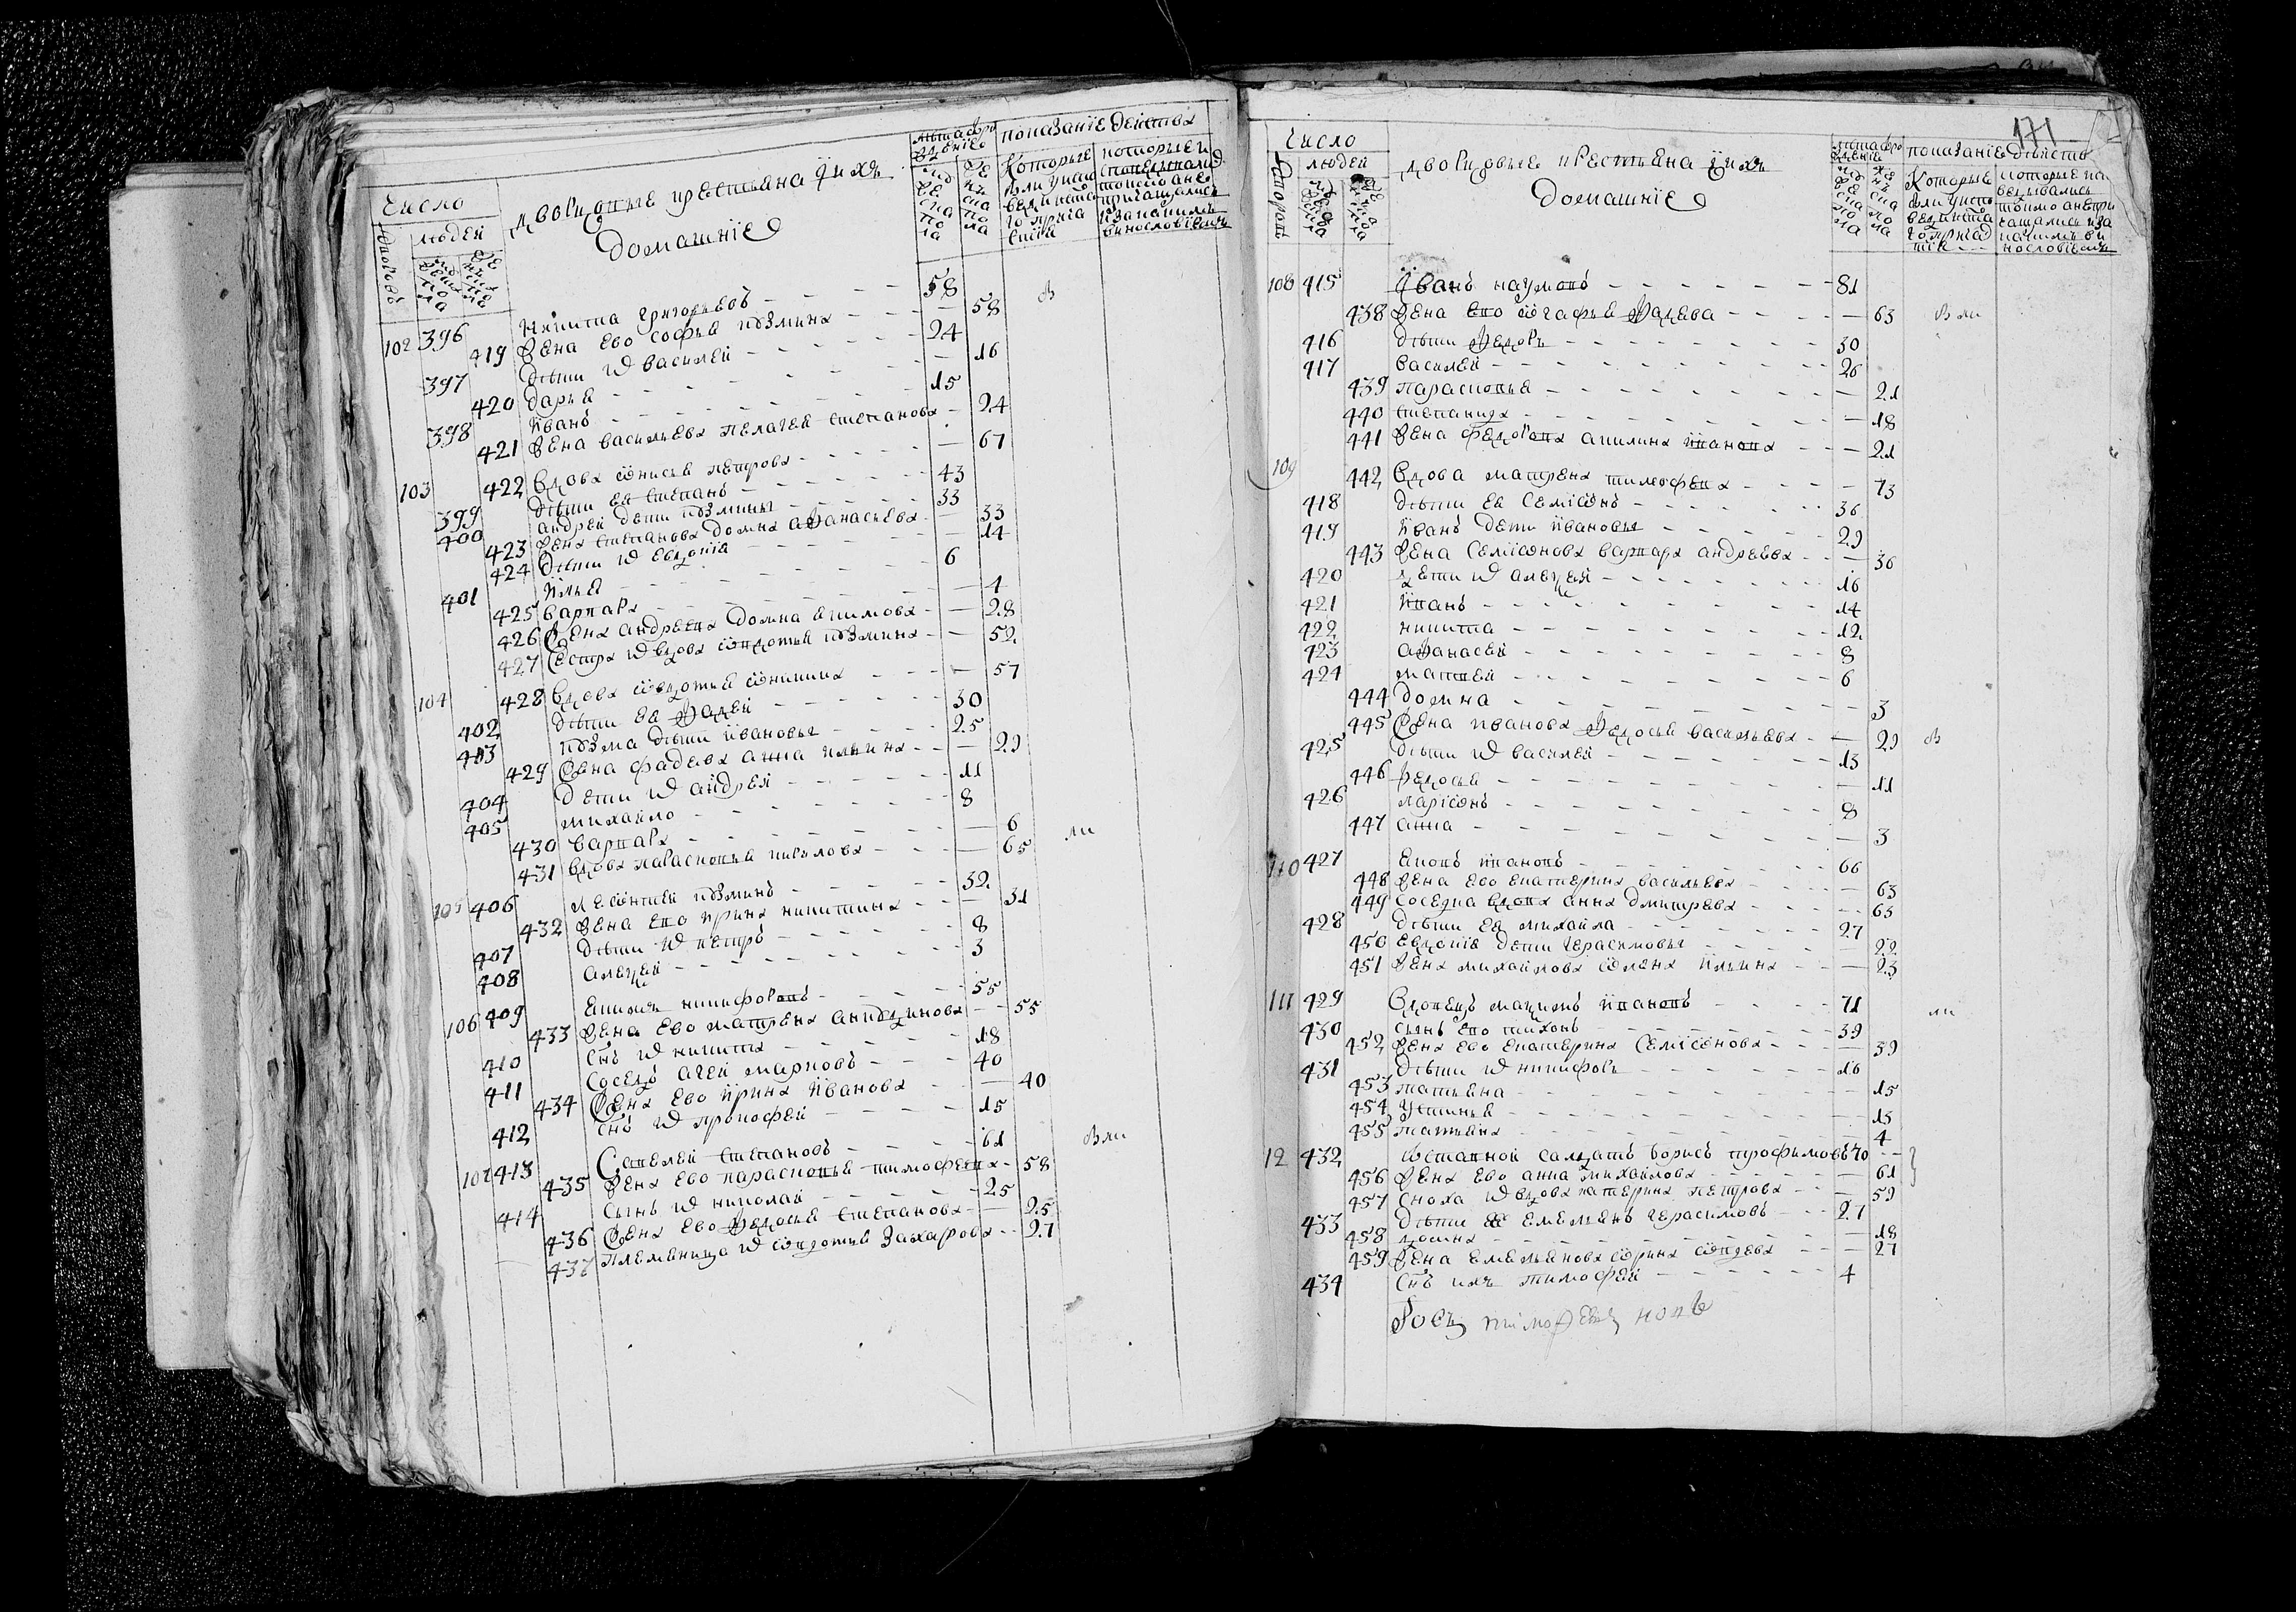 Число
людей
дворцовые крестьяна и ихъ
домашние
показание действа
102 396 Никита григорьевъ 58
419 Жена ево софья козмина 58
397 Дѣти их василей 24
420 дарья 16
398 иванъ 15
421 Жена васильева пелагея степанова 24
103 422 Вдова анисья петрова 67
399 дѣти ея степанъ 43
400 андрей дети козмины 33
423 Жена степанова домна афанасьева 33
424 Дѣти их евдокия 14
401 илья 6
425 варвара 4
426 Жена андреева домна екимова 28
427 Сестра их вдова авдотья козмина 52
104 428 Вдова авдотья аникина 57
402 дѣти ея фадей 30
403 козма дѣти ивановы 25
429 Жена фадеева анна ильина 29
404 Дети их андрей 11
405 михайло 8
430 варвара 6
431 Вдова парасковья кирилова 65
105 406 леонтей козминъ 32
432 Жена ево ирина никитина 31
407 дѣти их петръ 8
408 алексей 3
106 409 Екимъ никифоровъ 55
433 Жена ево матрена анкидинова 55
410 снъ их никита 18
411 Соседъ агей марковъ 40
434 Жена ево ирина иванова 40
412 снъ их прокофей 15
107 413 Савелей степановъ 61
435 Жена ево парасковья тимофеева 58
414 сынъ их николай 25
436 Жена ево федосья степанова 25
437 племяница их авдотья захарова 27
171
Число
людей
дворцовые крестьяна и ихъ
домашние
показание действа
108 415 Иванъ наумовъ 81
438 Жена ево агафья фадеева 63
416 дѣти федоръ 30
417 василей 26
439 парасковья 21
440 степанида 18
441 Жена федорова акилина иванова 21
109 442 Вдова матрена тимофеева 73
418 дѣти ея семионъ 36
419 иванъ дети ивановы 29
443 Жена семионова варвара андреева 36
420 дети их алексей 16
421 иванъ 14
422 никита 12
423 афанасей 8
424 матвей 6
444 домна 3
445 Жена иванова федосья васильева 29
425 дѣти их василей 13
446 федосья 11
426 ларионъ 8
447 анна 3
110 427 Яковъ ивановъ 66
448 Жена ево екатерина васильева 63
449 соседка вдова анна дмитрева 65
428 дѣти ея михайла 27
450 евдокия дети герасимовы 22
451 Жена михайлова олена ильина 23
111 429 Вдовецъ максимъ ивановъ 71
430 сынъ ево тихонъ 39
452 Жена ево екатерина семионова 39
431 дѣти их никифоръ 16
453 татьяна 15
454 устинья 13
455 татьяна 4
12 432 Отставной салдатъ борисъ трофимовъ 70
456 Жена ево анна михайлова 61
457 сноха их вдова катерина петрова 59
433 дѣти ее емельянъ герасимовъ 27
458 домна 18
459 Жена емельянова арина авдеева 27
434 снъ ихъ тимофей 4